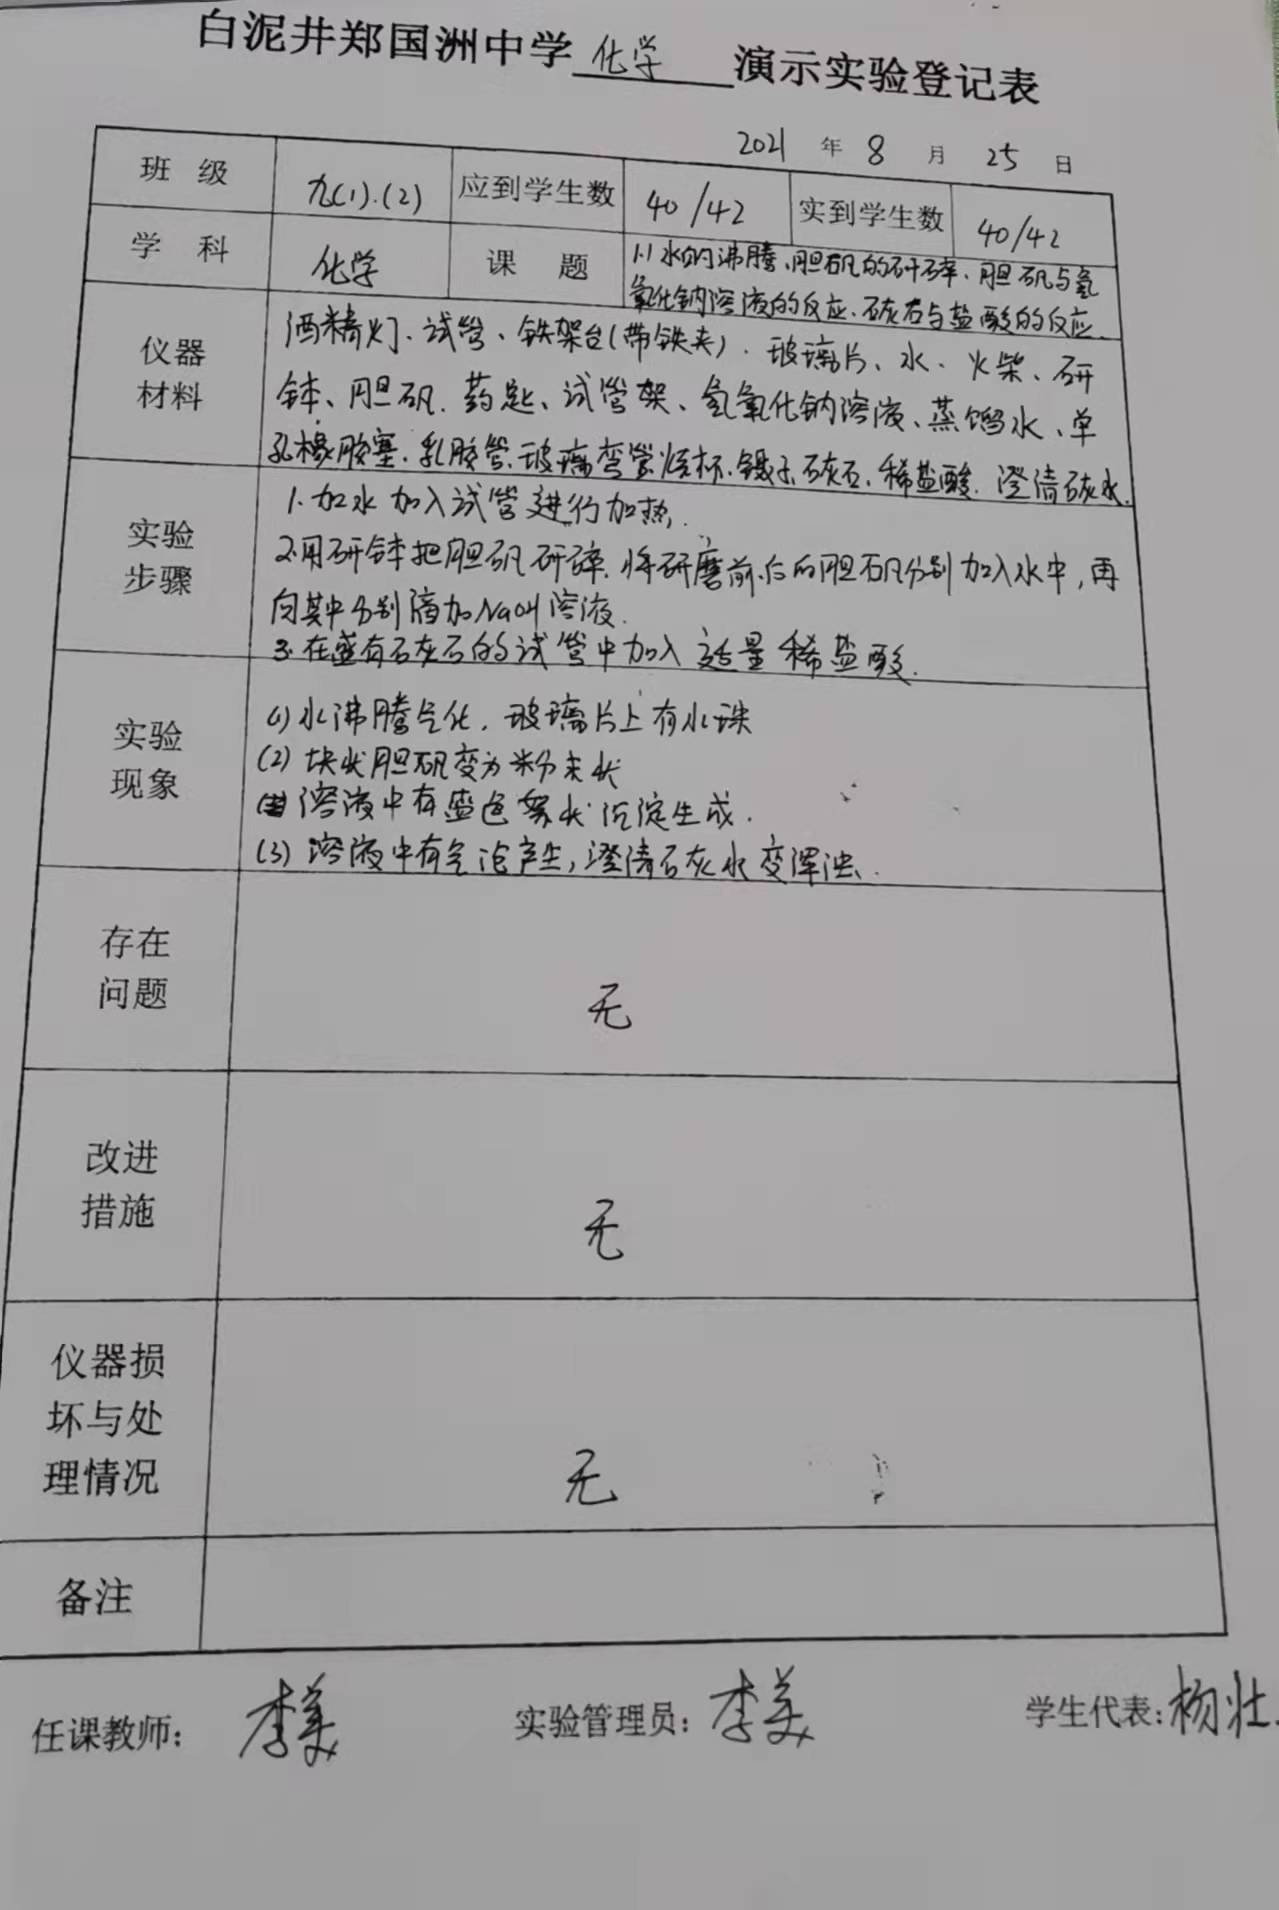 白泥井郑国洲中学 化学 演示实验登记表
2021 年 8 月 25 日
班 级 九(1).(2) 应到学生数 40/42 实到学生数 40/42
学 科 化学 课 题 1.1 水的沸腾、胆矾的研碎、胆矾与氢
氧化钠溶液的反应、石灰石与盐酸的反应.
仪器
材料
酒精灯、试管、铁架台(带铁夹)、玻璃片、水、火柴、研
钵、胆矾、药匙、试管架、氢氧化钠溶液、蒸馏水、单
孔橡胶塞、乳胶管、玻璃弯管、烧杯、镊子、石灰石、稀盐酸、澄清石灰水.
实验
步骤
1.加水加入试管进行加热.
2.用研钵把胆矾研碎.将研磨前、后的胆矾分别加入水中,再
向其中分别滴加NaOH溶液.
3.在盛有石灰石的试管中加入适量稀盐酸.
实验
现象
(1)水沸腾气化,玻璃片上有水珠
(2)块状胆矾变为粉末状
溶液中有蓝色絮状沉淀生成.
(3)溶液中有气泡产生,澄清石灰水变浑浊.
存在
问题
无
改进
措施
无
仪器损
坏与处
理情况
无
备注
任课教师: 李美 实验管理员: 李美 学生代表: 杨壮